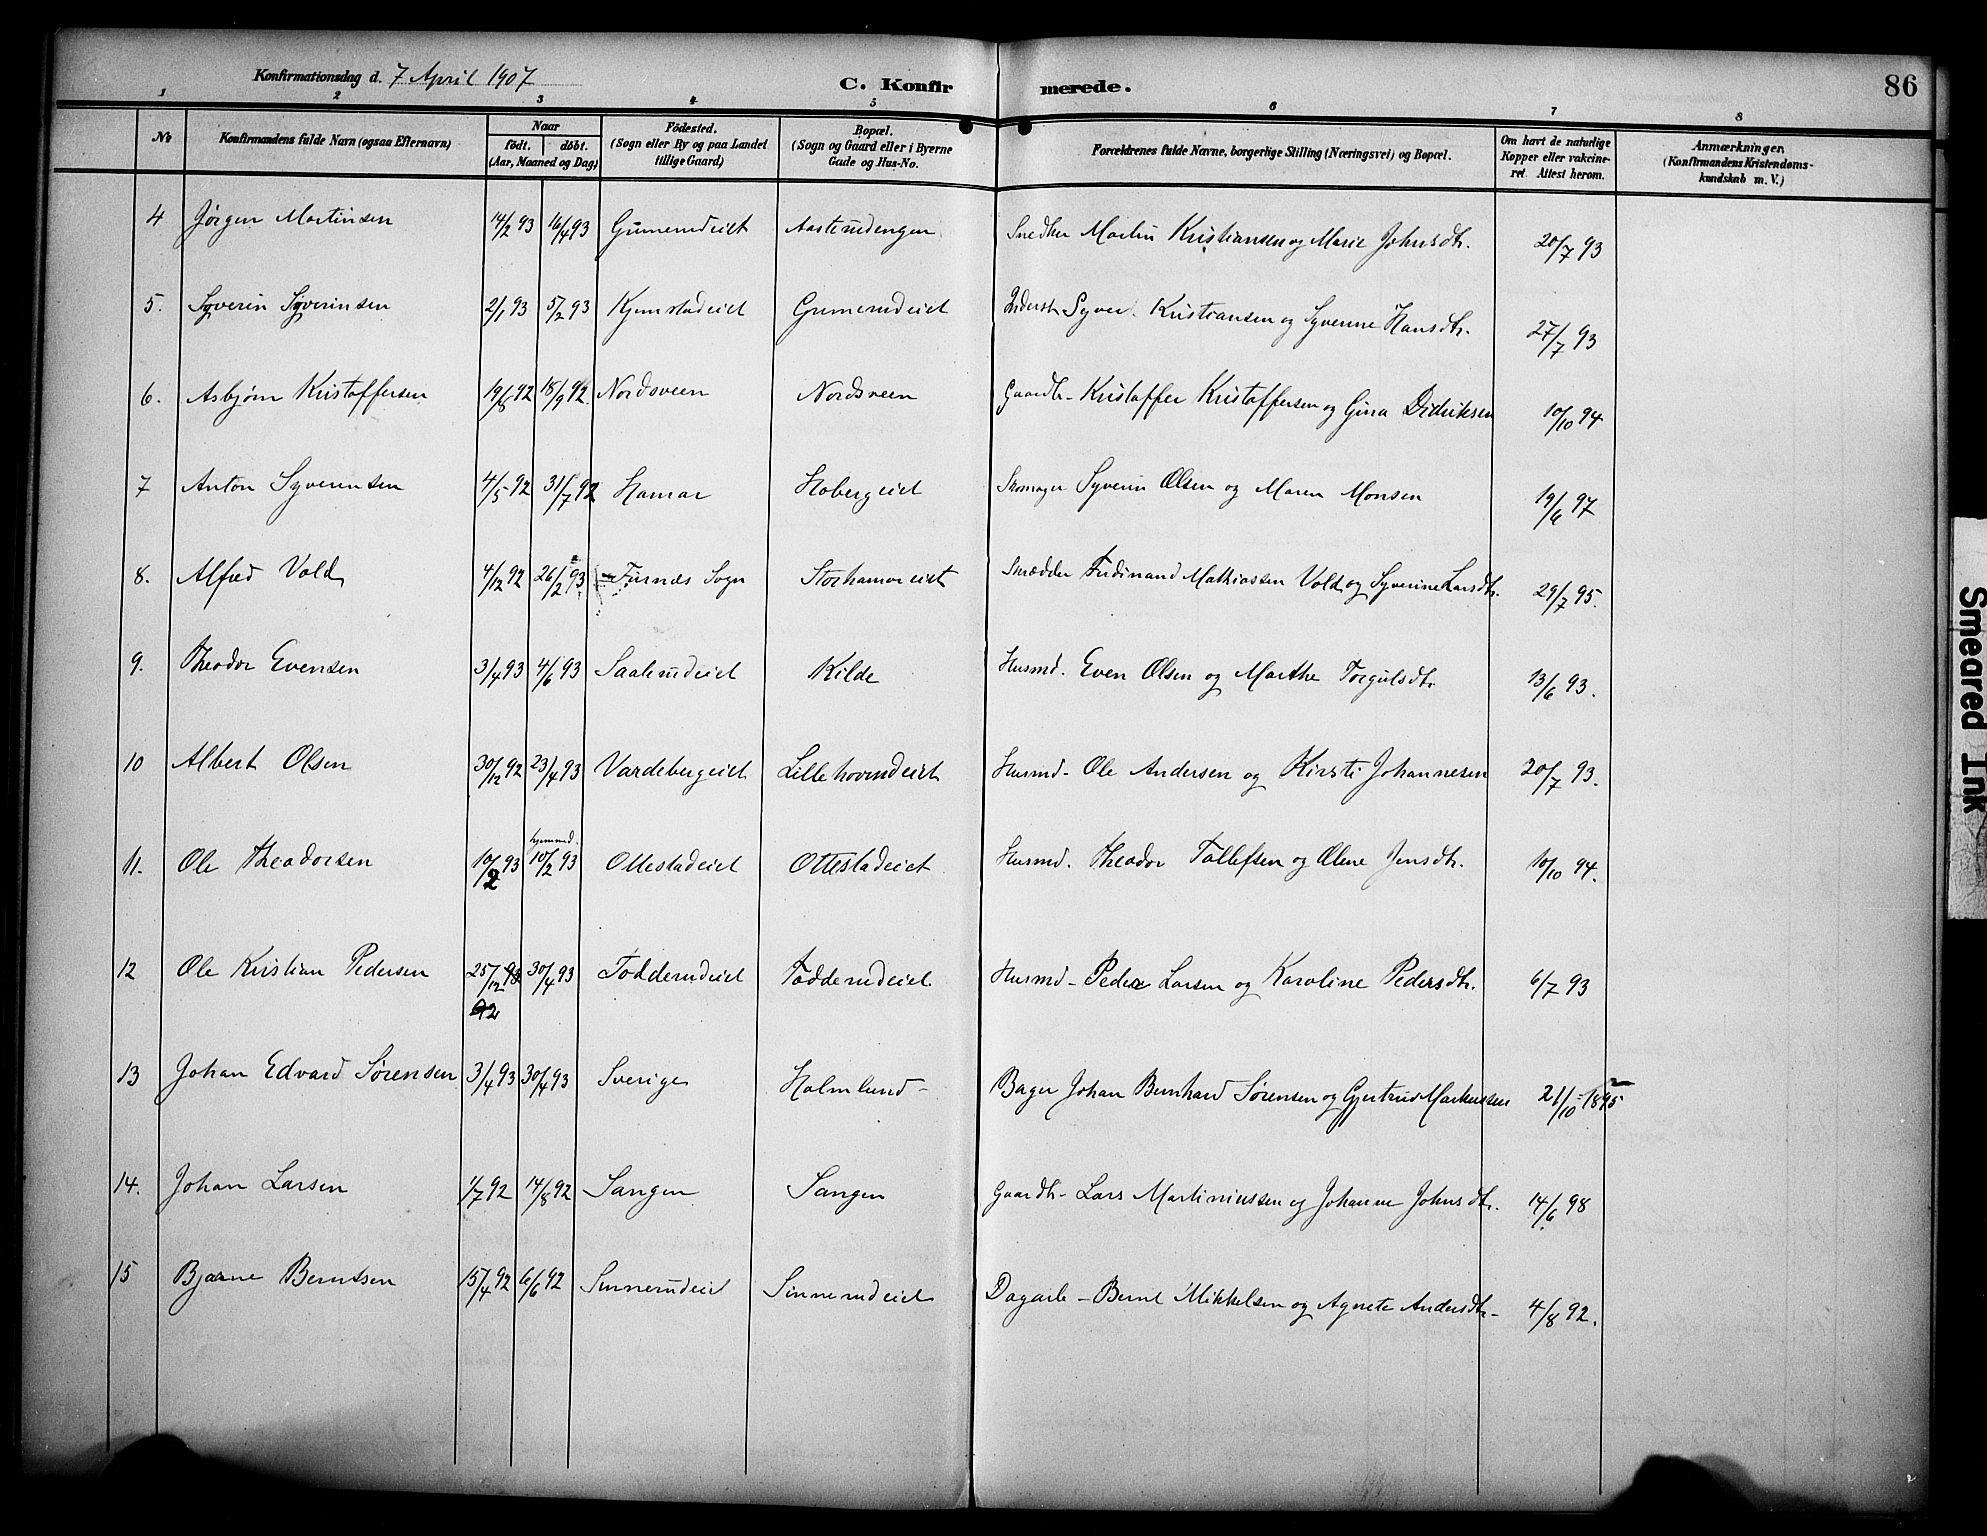 Konfirmationsdag d. 7 April 1907
C. Konfirmerede.
86
1 2 3 4 5 6 7 8
No
Konfirmandens fulde Navn (ogsaa Efternavn)
Naar
født. døbt.
(Aar, Maaned og Dag)
Fødested.
(Sogn eller By og paa Landet
tillige Gaard)
Bopæl.
(Sogn og Gaard eller i Byerne
Gade og Hus-No.
Forældrenes fulde Navne, borgerlige Stilling (Næringsvei) og Bopæl.
Om havt de naturlige
Kopper eller vakcine-
ret. Attest herom.
Anmærkninger.
(Konfirmandens Kristendoms-
kundskab m. V.)
4 Jørgen Martinsen 14/2 93 16/4 93 Gumerudeiet Aasterudengen Snedker Martin Kristiansen og Marie Johnsdtr. 20/7 93
5. Syverin Syverinsen 2/1 93 5/2 93 Kjemstadeiet Grumerudeiet Inderst Syver Kristiansen og Syverine Hansdtr. 27/7 93
6. Asbjørn Kristoffersen 19/8 92 18/9 92. Nordsveen Nordsveen Gaardbr- Kristoffer Kristoffersen og Gina Didriksen 10/10 94
7 Anton Syverinsen 4/5 92 31/7 92 Hamar Hobergeiet Skomager Syverin Olsen og Maren Monsen 19/6 97
8. Alfred Vold 4/12 92 26/2 93 Furnæs Sogn Storhamareiet Skrædder Ferdinand Mathiassen Vold og Syverine Larsdtr. 29/7 95.
9. Theodor Evensen 3/4 93 4/6 93 Saalerudeiet Kilde Husmd. Even Olsen og Marthe Torgulsdtr. 13/6 93.
10 Albert Olsen 30/12 92 23/4 93 Vardebergeiet Lillehovindeiet Husmd- Ole Andersen og Kirsti Johannesen 20/7 93.
hjemmed.
11. Ole Theodorsen 10/2 93 10/2 93 Ottestadeiet Ottestadeiet Husmd. Theodor Tollefsen og Oline Jensdtr. 10/10 94.
12 Ole Kristian Pedersen 25/12 93 30/4 93 Fodderudeiet Fodderudeiet Husmd- Peder Larsen og Karoline Pedersdtr. 6/7 93
92
13 Johan Edvard Sørensen 3/4 93 30/4 93 Sverige Holmlund- Bager Johan Bernhard Sørensen og Gjertrud Markussen 21/10 1895
14. Johan Larsen 1/7 92 14/8 92 Sangen Sangen Gaardbr- Lars Martiniussen og Johanne Johnsdtr. 14/6 98
15 Bjarne Berntsen 15/4 92 6/6 92 Sinnerudeiet Sinnerudeiet Dagarb- Bernt Mikkelsen og Agnete Andersdtr- 4/8 92.
Smeared Ink